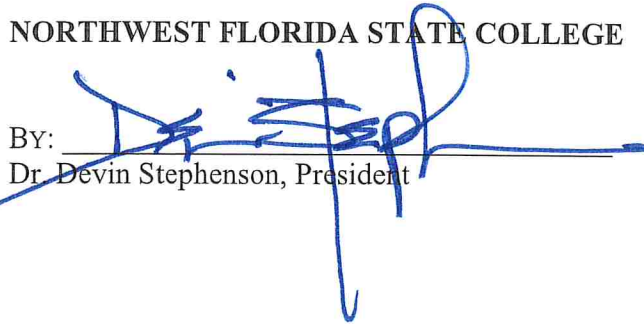 NORTHWEST FLORIDA STATE COLLEGE
BY:
Dr. Devin Stephenson, President